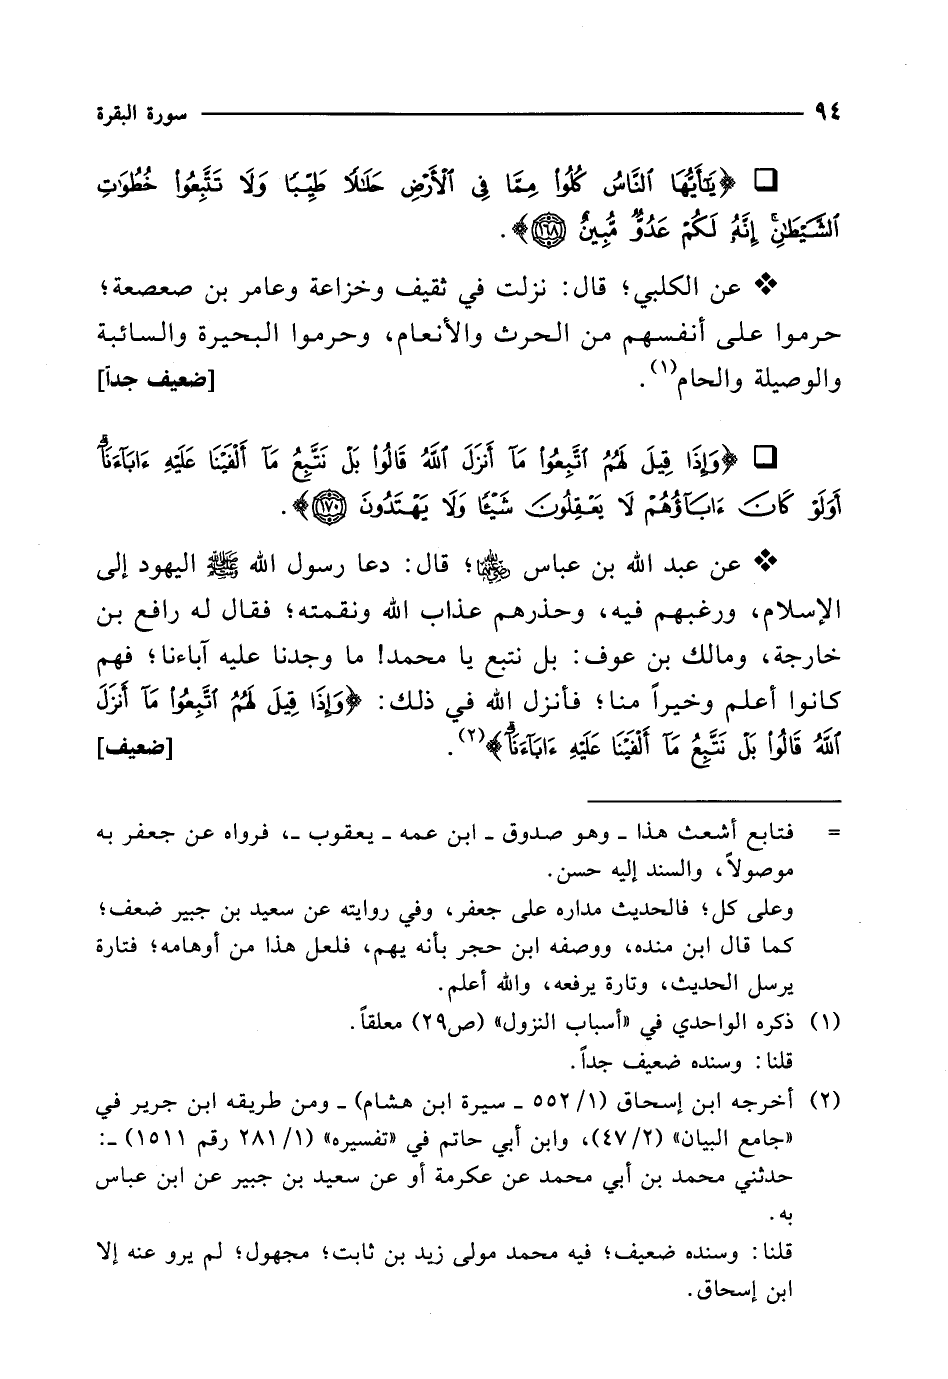 ٩٤ سورة البقرة
﴿يَٰٓأَيُّهَا ٱلنَّاسُ كُلُوا۟ مِمَّا فِى ٱلْأَرْضِ حَلَٰلًا طَيِّبًا وَلَا تَتَّبِعُوا۟ خُطُوَٰتِ
ٱلشَّيْطَٰنِ ۚ إِنَّهُۥ لَكُمْ عَدُوٌّ مُّبِينٌ ١٦٨﴾.
عن الكلبي؛ قال: نزلت في ثقيف وخزاعة وعامر بن صعصعة؛
حرموا على أنفسهم من الحرث والأنعام، وحرموا البحيرة والسائبة
والوصيلة والحام(١). [ضعيف جداً]
﴿وَإِذَا قِيلَ لَهُمُ ٱتَّبِعُوا۟ مَآ أَنزَلَ ٱللَّهُ قَالُوا۟ بَلْ نَتَّبِعُ مَآ أَلْفَيْنَا عَلَيْهِ ءَابَآءَنَآ ۗ
أَوَلَوْ كَانَ ءَابَآؤُهُمْ لَا يَعْقِلُونَ شَيْـًٔا وَلَا يَهْتَدُونَ ١٧٠﴾.
عن عبد الله بن عباس رضي الله عنهما؛ قال: دعا رسول الله ﷺ اليهود إلى
الإسلام، ورغبهم فيه، وحذرهم عذاب الله ونقمته؛ فقال له رافع بن
خارجة، ومالك بن عوف: بل نتبع يا محمد! ما وجدنا عليه آباءنا؛ فهم
كانوا أعلم وخيراً منا؛ فأنزل الله في ذلك: ﴿وَإِذَا قِيلَ لَهُمُ ٱتَّبِعُوا۟ مَآ أَنزَلَ
ٱللَّهُ قَالُوا۟ بَلْ نَتَّبِعُ مَآ أَلْفَيْنَا عَلَيْهِ ءَابَآءَنَآ ۗ﴾(٢). [ضعيف]
= فتابع أشعث هذا ـ وهو صدوق ـ ابن عمه ـ يعقوب ـ، فرواه عن جعفر به
موصولاً، والسند إليه حسن.
وعلى كل؛ فالحديث مداره على جعفر، وفي روايته عن سعيد بن جبير ضعف؛
كما قال ابن منده، ووصفه ابن حجر بأنه يهم، فلعل هذا من أوهامه؛ فتارة
يرسل الحديث، وتارة يرفعه، والله أعلم.
(١) ذكره الواحدي في «أسباب النزول» (ص٢٩) معلقاً.
قلنا: وسنده ضعيف جداً.
(٢) أخرجه ابن إسحاق (١/ ٥٥٢ ـ سيرة ابن هشام) ـ ومن طريقه ابن جرير في
«جامع البيان» (٢/ ٤٧)، وابن أبي حاتم في «تفسيره» (١/ ٢٨١ رقم ١٥١١) ـ:
حدثني محمد بن أبي محمد عن عكرمة أو عن سعيد بن جبير عن ابن عباس
به.
قلنا: وسنده ضعيف؛ فيه محمد مولى زيد بن ثابت؛ مجهول؛ لم يرو عنه إلا
ابن إسحاق.